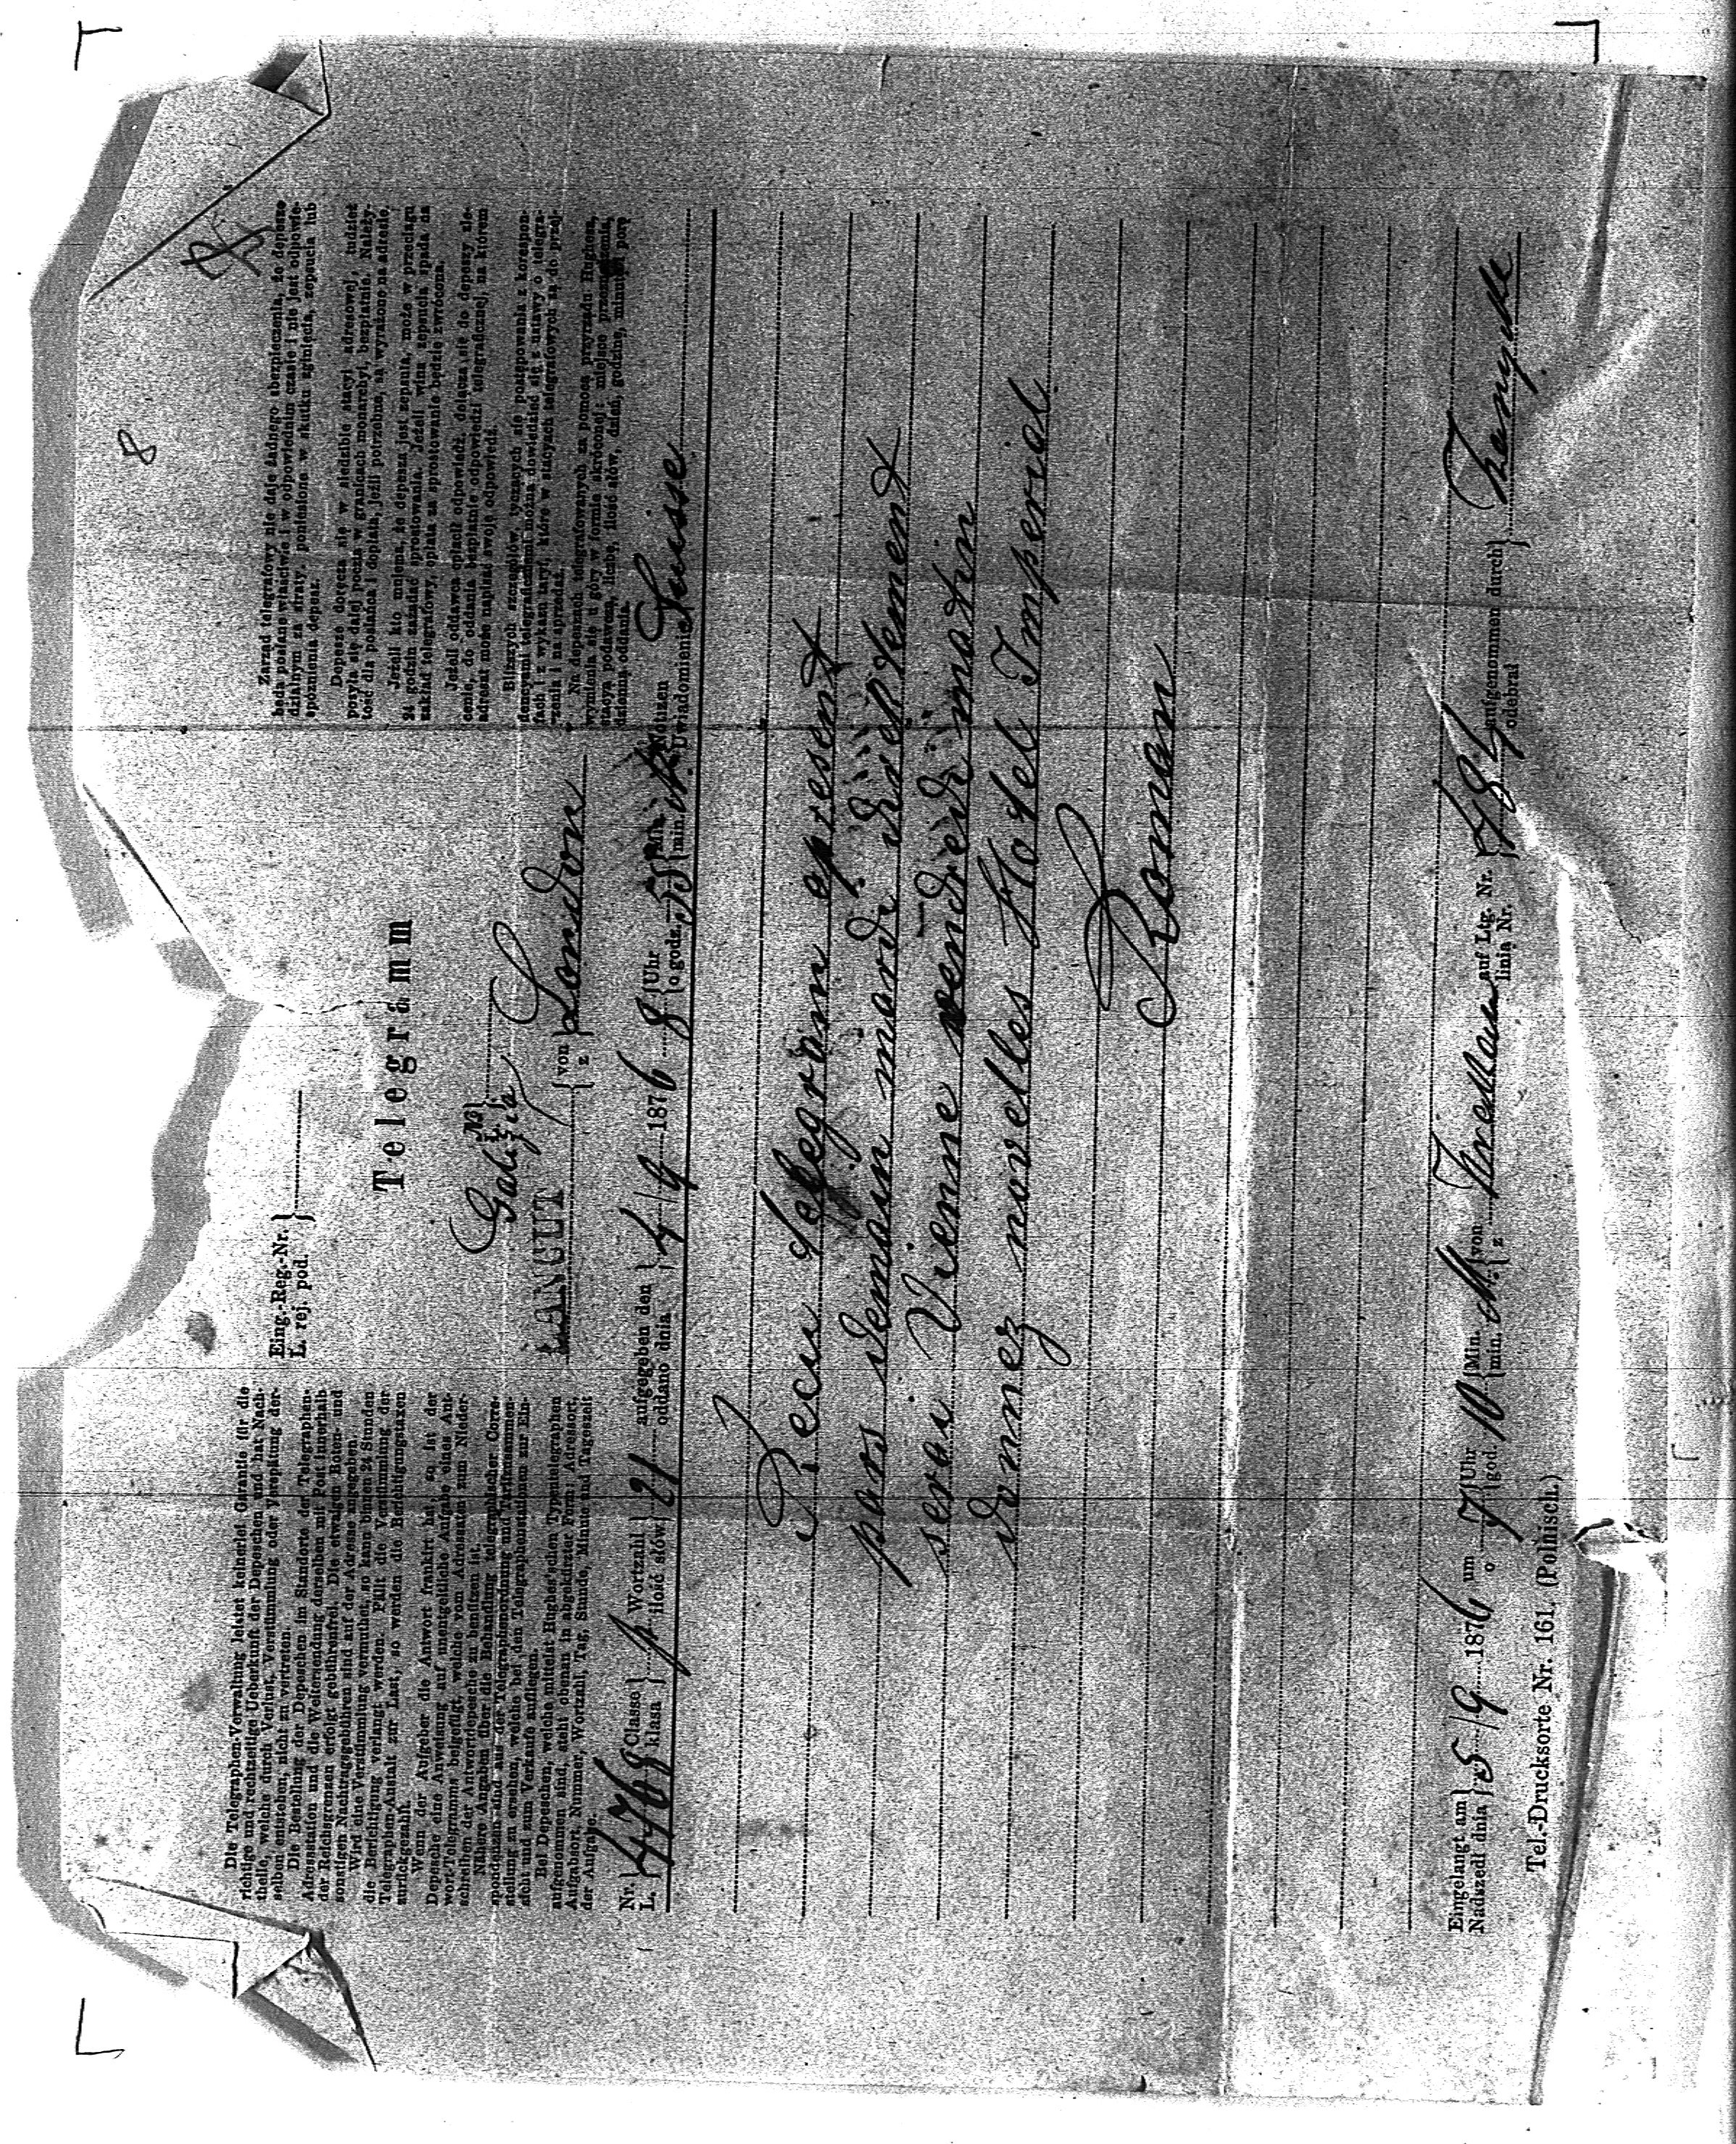 8
Eing.-Reg.-Nr.
L. rej. pod.
Telegramm
Die Telegraphen-Verwaltung leistet keinerlei Garantie für die
richtige und rechtzeitige Ueberkunft der Depeschen und hat Nach-
theile, welche durch Verlust, Verstümmlung oder Verspätung der-
selben entstehen, nicht zu vertreten.
Die Bestellung der Depeschen im Standorte der Telegraphen-
Adressstation und die Weitersendung derselben mit Post innerhalb
der Reichsgrenzen erfolgt gebührenfrei. Die etwaigen Boten- und
sonstigen Nachtragsgebühren sind auf der Adresse angegeben.
Wird eine Verstümmlung vermuthet, so kann binnen 24 Stunden
die Berichtigung verlangt werden. Fällt die Verstümmlung der
Telegraphen-Anstalt zur Last, so werden die Berichtigungstaxen
zurückgezahlt.
Wenn der Aufgeber die Antwort frankirt hat, so ist der
Depesche eine Anweisung auf unentgeltliche Aufgabe eines Ant-
wort-Telegramms beigefügt, welche vom Adressaten zum Nieder-
schreiben der Antwortdepesche zu benützen ist.
Nähere Angaben über die Behandlung telegraphischer Corre-
spondenzen sind aus der Telegraphenordnung und Tarifzusammen-
stellung zu ersehen, welche bei den Telegraphenstationen zur Ein-
sicht und zum Verkaufe aufliegen.
Bei Depeschen, welche mittelst Hughes'schen Typentelegraphen
aufgenommen sind, steht obenan in abgekürzter Form: Adressort,
Aufgabsort, Nummer, Wortzahl, Tag, Stunde, Minute und Tageszeit
der Aufgabe.
Galizia
ŁAŃCUT
von
z
London
Zarząd telegrafowy nie daje żadnego zbezpieczenia, że depesze
będą posłane właściwie i w odpowiednim czasie i nie jest odpowie-
dzialnym za straty, poniesione w skutku zgnięcia, zepsucia lub
spóźnienia depesz.
Depesze doręcza się w siedzibie stacyi adresowej, tudzież
posyła się dalej pocztą w granicach monarchyi, bezpłatnie. Należy-
tość dla posłańca i dopłata, jeźli potrzebne, są wyrażone na adresie.
Jeżeli kto mniema, że depesza jest zepsuta, może w przeciągu
24 godzin zażądać sprostowania. Jeżeli wina zepsucia spada na
zakład telegrafowy, opłata za sprostowanie będzie zwrócona.
Jeżeli oddawca opłacił odpowiedź, dołącza się do depeszy zle-
cenie, do oddania bezpłatnie odpowiedzi telegraficznej, na którem
adresat może napisać swoję odpowiedź.
Bliższych szczegółów, tyczących się postępowania z korespon-
dencyami telegraficznemi można dowiedzieć się z ustawy o telegra-
fach i z wykazu taryf, które w stacyach telegrafowych są do przej-
rzenia i na sprzedaż.
Na depeszach telegrafowanych za pomocą przyrządu Hughesa,
wymienia się u góry w formie skróconej: miejsce przeznaczenia,
stacyę podawczą, liczbę, ilość słów, dzień, godzinę, minutę i porę
dzienną oddania.
Nr.
L.
Classe
klasa
Wortzahl
ilość słów
21
aufgegeben den
oddano dnia
4/9 1876
8
Uhr
o godz.
55
Min.
min.
Notizen
Uwiadomienie
Suisse
Recu telegram present
pars demain mardi directement
serai Vienne vendredi matin
donnez novelles Hotel Imperial
Roman
Eingelangt am
Nadszedł dnia
5/9 1876
um
o
7
Uhr
god.
10
Min.
min.
M.
von
z
auf Ltg. Nr.
linia Nr.
484
aufgenommen durch
odebrał
Tel.-Drucksorte Nr. 161. (Polnisch.)